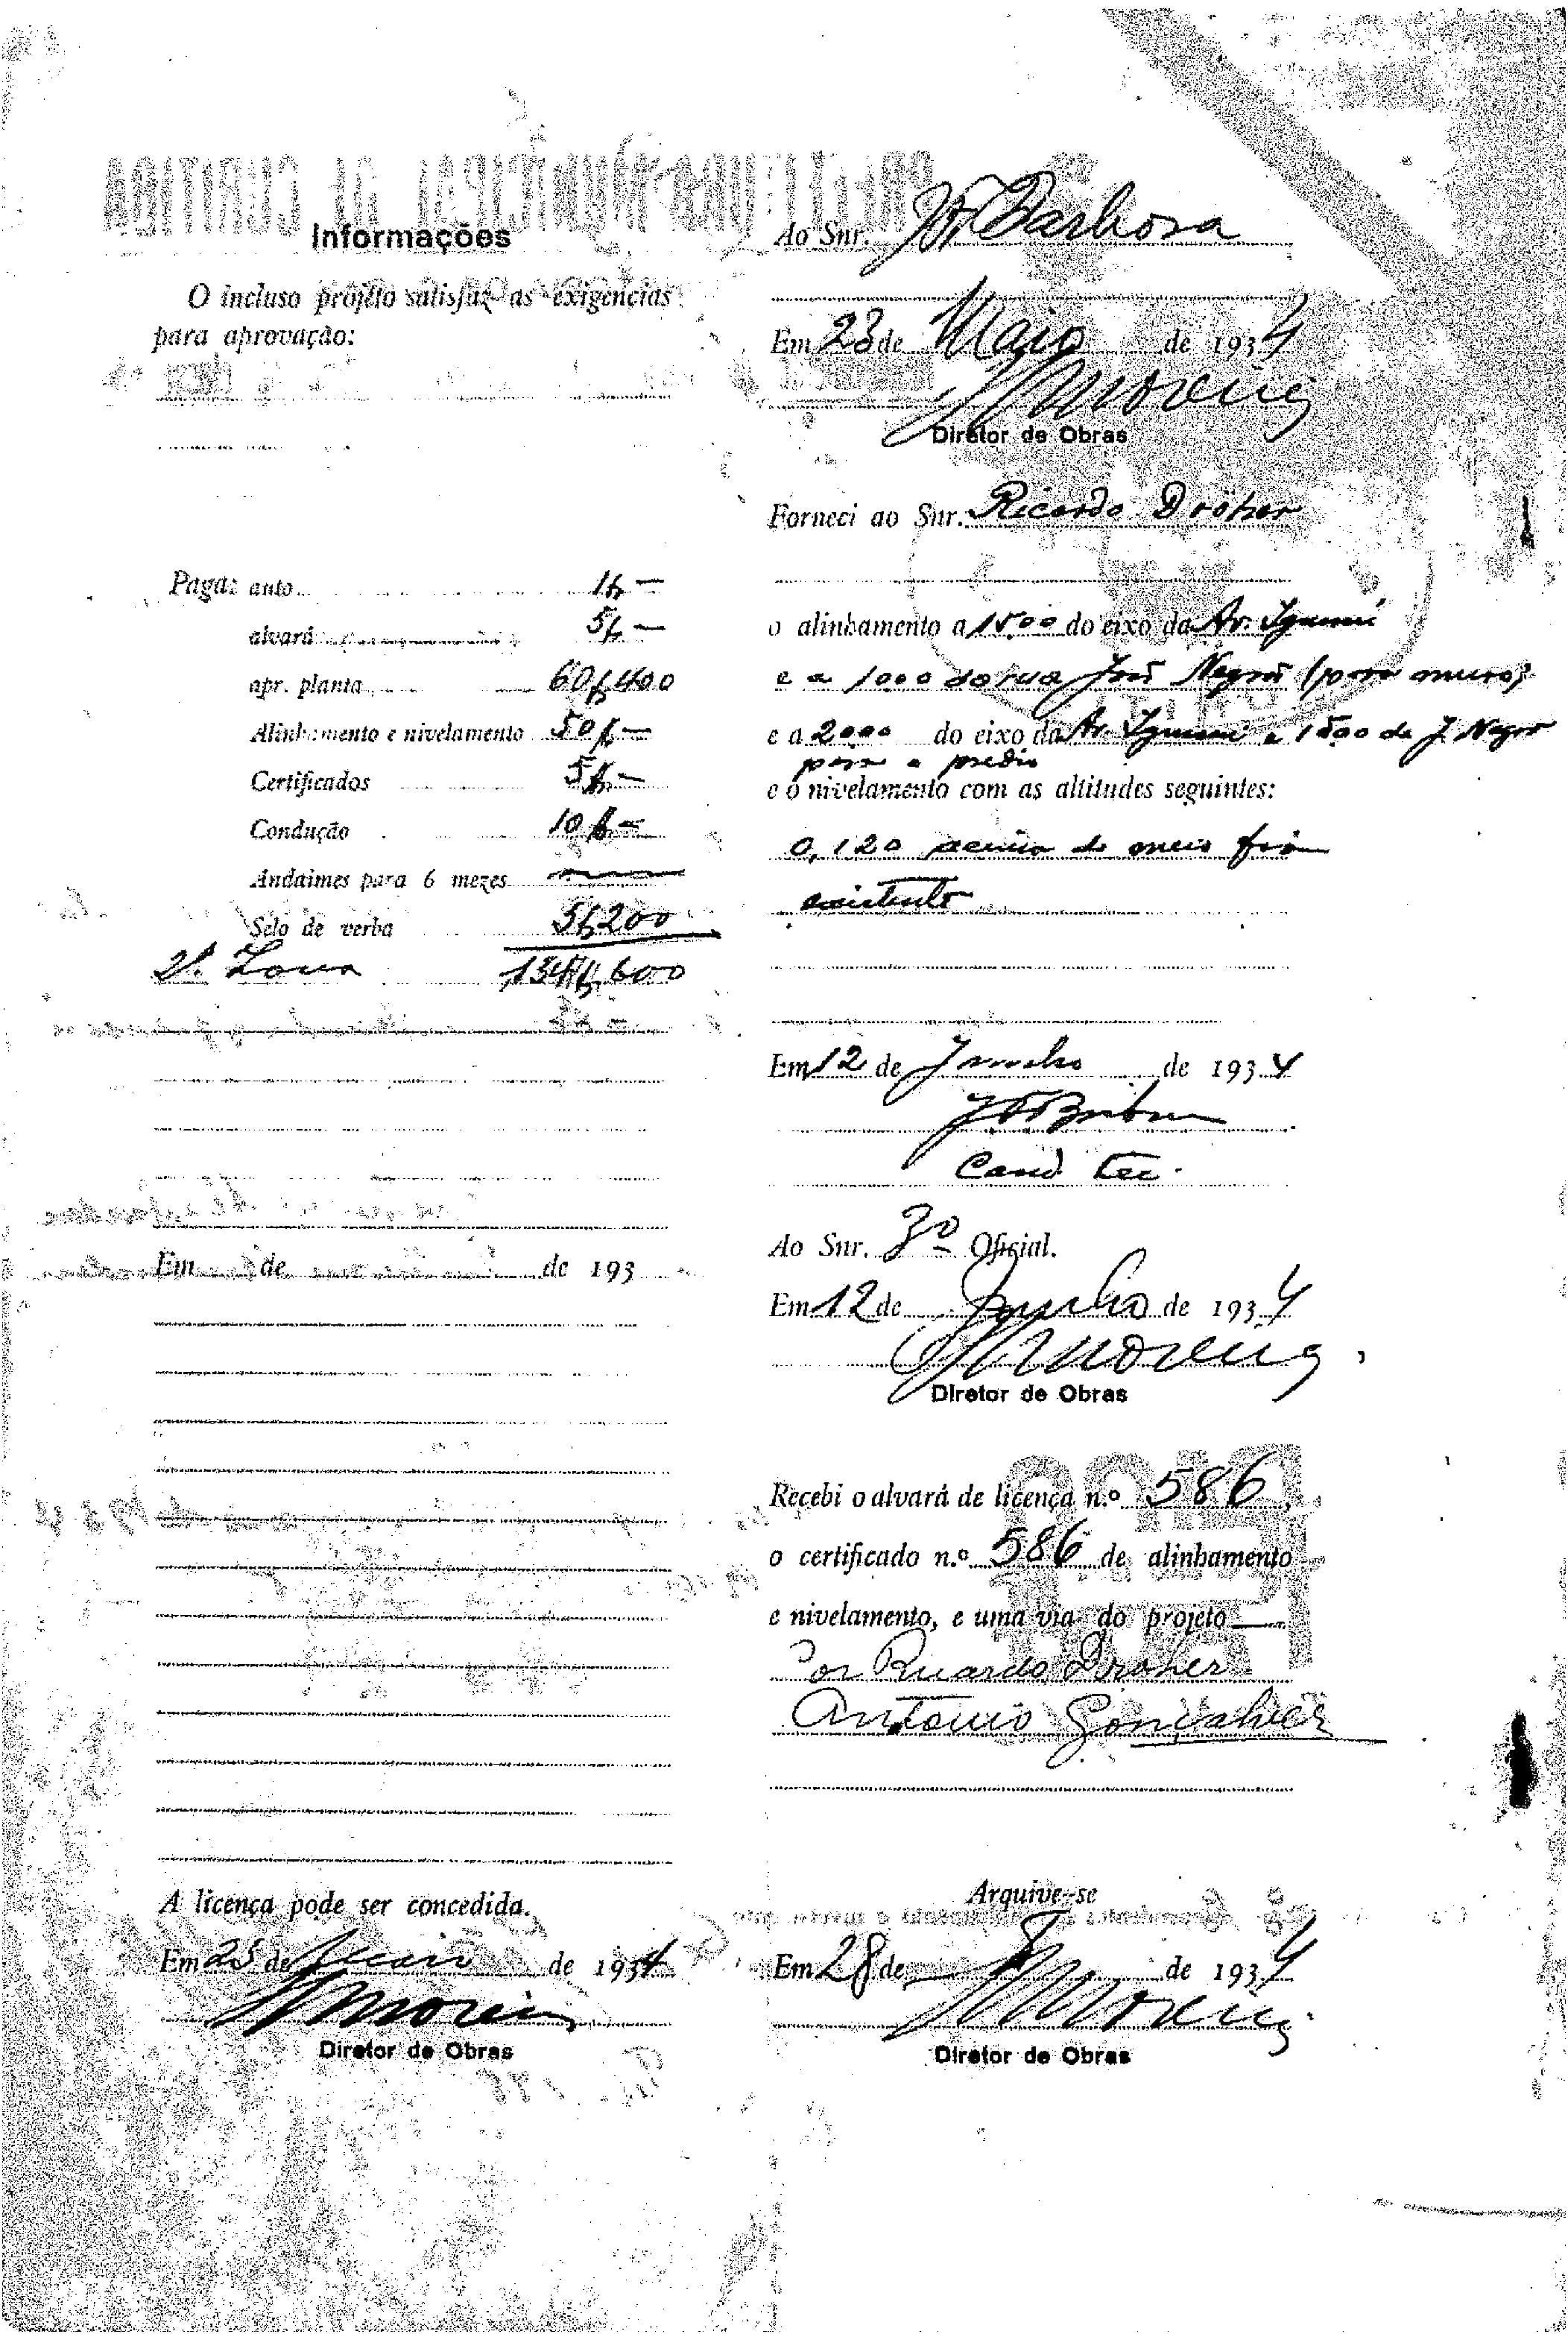 PREFEITURA MUNICIPAL DE CURITIBA
Informações
O incluso projéto satisfaz as exigencias
para aprovação:
Paga: auto 1$—
alvará 5$—
apr. planta 60$400
Alinhamento e nivelamento 50$—
Certificados 5$—
Condução 10$—
Andaimes para 6 mezes —
Selo de verba 3$200
134$600
Em de de 193
A licença pode ser concedida.
Em 25 de Maio de 1934
Diretor de Obras
Ao Snr. Barbosa
Em 23 de Maio de 1934
Moreira
Diretor de Obras
Forneci ao Snr. Ricardo Droher
o alinhamento a 1500 do eixo da Av. Iguassú
e a 1000 da rua José Negrão (para muro)
e a 2000 do eixo da Av. Iguassú e 1500 da J. Negrão
para o predio
e o nivelamento com as altitudes seguintes:
0,120 acima do meio fio
existente
Em 12 de Junho de 1934
Cand. Tec.
Ao Snr. 3º Oficial.
Em 12 de Junho de 1934
Moreira
Diretor de Obras
Recebi o alvará de licença n.º 586,
o certificado n.º 586 de alinhamento
e nivelamento, e uma via do projeto
Por Ricardo Droher
Antonio Gonçalves
Arquive-se
Em 28 de de 1934
Moreira
Diretor de Obras